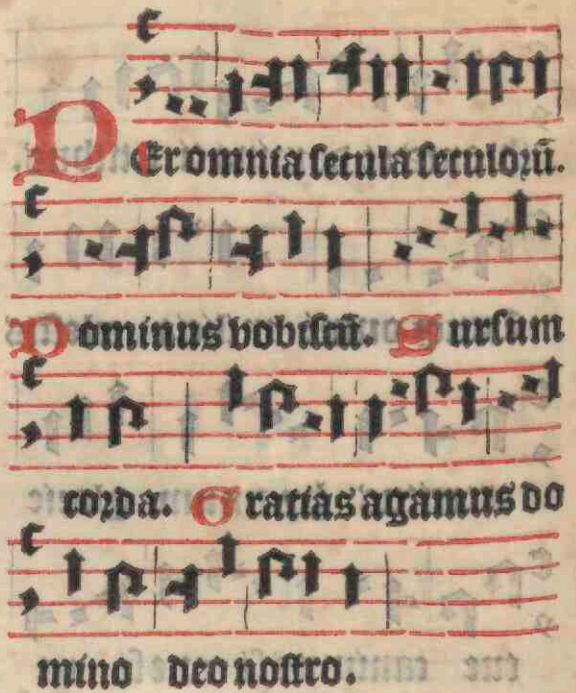 PEr omnia secula seculorū.
Dominus vobiscū. Sursum
corda. Gratias agamus do
mino deo nostro.